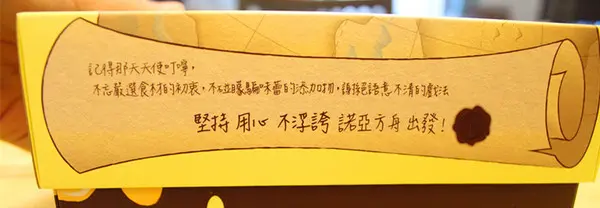 記得那天天使叮嚀，
不忘嚴選食材的初衷，不矇騙味蕾的添加物，語意不清的魔法
堅持 用心 不浮誇 諾亞方舟 出發！